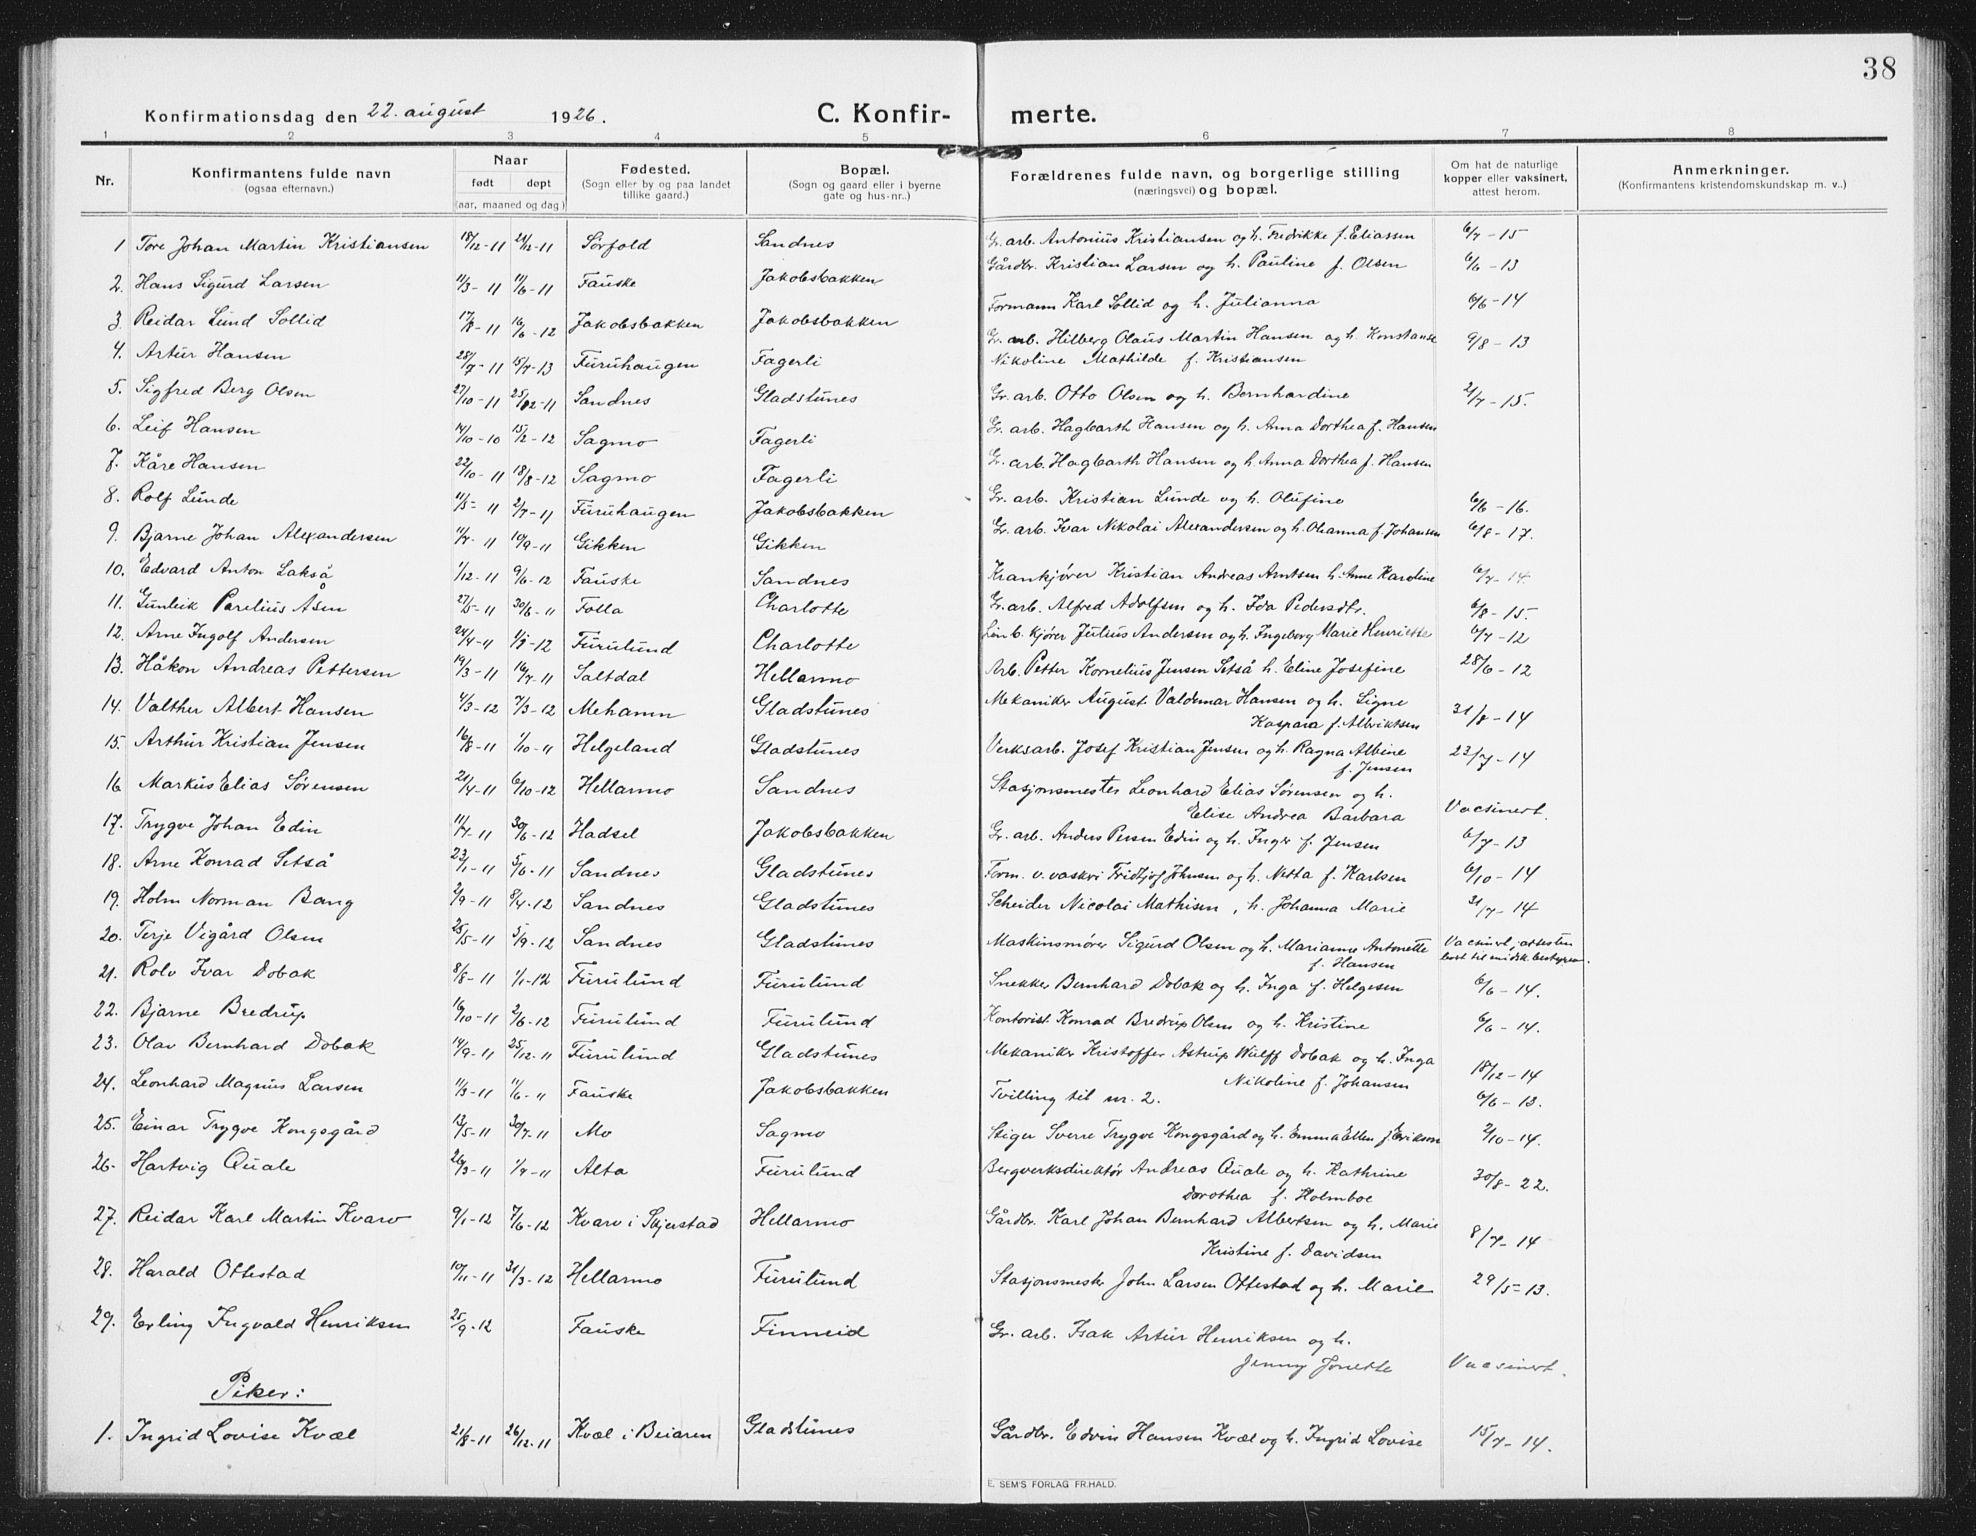 38
Konfirmationsdag den 22. august 1926. C. Konfir- merte.
1 2 3 4 5 6 7 8
Nr. Konfirmantens fulde navn (ogsaa efternavn.) Naar født døpt (aar, maaned og dag) Fødested. (Sogn eller by og paa landet tillike gaard.) Bopæl. (Sogn og gaard eller i byerne gate og hus-nr..) Forældrenes fulde navn, og borgerlige stilling (næringsvei) og bopæl. Om hat de naturlige kopper eller vaksinert, attest herom. Anmerkninger. (Konfirmantens kristendomskundskap m. v..)
1 Tore Johan Martin Kristiansen 18/12-11 21/12-11 Sørfold Sandnes Gr. arb. Antonius Kristiansen og h. Fredrikke f. Eliassen 6/7-15
2. Hans Sigurd Larsen 11/3-11 11/6-11 Fauske Jakobsbakken Gårdbr. Kristian Larsen og h. Pauline f. Olsen 6/6-13
3. Reidar Lund Sollid 17/8-11 16/6-12 Jakobsbakken Jakobsbakken Formann Karl Sollid og h. Julianna 6/6-14
4. Artur Hansen 28/7-11 15/7-13 Furuhaugen Fagerli Gr. arb. Hilberg Olaus Martin Hansen og h. Konstanse
Nikoline Mathilde f. Kristiansen 9/8-13
5. Sigfred Berg Olsen 27/10-11 25/12-11 Sandnes Gladstunes Gr. arb. Otto Olsen og h. Bernhardine 2/7-15.
6. Leif Hansen 14/10-10 15/2-12 Sagmo Fagerli Gr. arb. Hagbarth Hansen og h. Anna Dorthea f. Hansen
7. Kåre Hansen 22/10-11 18/8-12 Sagmo Fagerli Gr. arb. Hagbarth Hansen og h. Anna Dorthea f. Hansen
8. Rolf Lunde 11/5-11 2/7-11 Furuhaugen Jakobsbakken Gr. arb. Kristian Lunde og h. Olufine 6/6-16.
9. Bjarne Johan Alexandersen 11/7-11 10/9-11 Gikken Gikken Gr. arb. Ivar Nikolai Alexandersen og h. Olianna f. Johansen 6/8-17.
10. Edvard Anton Lakså 1/12-11 9/6-12 Fauske Sandnes Krankjører Kristian Andreas Arntsen h. Anne Karoline 6/7-14
11. Gunleik Parelius Åsen 27/5-11 30/6-11 Folla Charlotte Gr. arb. Alfred Adolfsen og h. Ida Pedersdtr. 6/8-15.
12. Arne Ingolf Andersen 24/4-11 1/3-12 Furulund Charlotte Linb. kjører Julius Andersen og h. Ingeborg Marie Henriette 6/7-12
13. Håkon Andreas Pettersen 19/3-11 16/7-11 Saltdal Hellarmo Arb. Petter Kornelius Jensen Setså h. Eline Josefine 28/6-12
14. Valther Albert Hansen 4/3-12 7/3-12 Mehamn Gladstunes Mekaniker August Valdemar Hansen og h. Signe
Kaspara f. Albriktsen 31/8-14
15. Arthur Kristian Jensen 16/8-11 1/10-11 Helgeland Gladstunes Verksarb. Josef Kristian Jensen og h. Ragna Albine
f. Jensen 23/7-14
16 Markus Elias Sørensen 21/4-11 6/10-12 Hellarmo Sandnes Stasjonsmester Leonhard Elias Sørensen og h.
Elise Andrea Barbara Vacsinert.
17. Trygve Johan Edin 11/7-11 30/6-12 Hadsel Jakobsbakken Gr. arb. Anders Persen Edin og h. Inger f. Jensen 6/7-13
18. Arne Konrad Setså 23/1-11 5/6-11 Sandnes Gladstunes Form. v. vaskri Fridtjof Johnsen og h. Netta f. Karlsen 6/10-14
19. Holm Norman Bang 2/9-11 8/4-12 Sandnes Gladstunes Scheider Nicolai Mathisen, h. Johanna Marie 31/7-14
20. Terje Vigård Olsen 25/5-11 5/9-12 Sandnes Gladstunes Maskinsmører Sigurd Olsen og h. Marianne Antonette
f. Hansen Vacsinert, attesten
21. Rolv Ivar Dobak 8/8-11 1/1-12 Furulund Furulund Snekker Bernhard Dobak og h. Inga f. Helgesen 6/6-14.
22. Bjarne Bredrup 16/10-11 2/6-12 Furulund Furulund Kontorist Konrad Bredrup Olsen og h. Kristine 6/6-14.
23. Olav Bernhard Dobak 14/9-11 25/12-11 Furulund Gladstunes Mekaniker Kristoffer Astrup Wulff Dobak og h. Inga
Nikoline f. Johansen 18/12-14
24. Leonhard Magnus Larsen 11/3-11 11/6-11 Fauske Jakobsbakken Tvilling til nr. 2. 6/6-13.
25. Einar Trygve Kongsgård 13/5-11 30/7-11 Mo Sagmo Stiger Sverre Trygve Kongsgård og h. Emma Ellen f. Erikson 2/10-14.
26. Hartvig Quale 26/3-11 1/7-11 Alta Furulund Bergverksdirektør Andreas Quale og h. Kathrine
Dorothea f. Holmboe 30/8-22.
27. Reidar Karl Martin Kvarv 9/1-12 7/6-12 Kvarv i Skjerstad Hellarmo Gårdbr. Karl Johan Bernhard Albertsen og h. Marie
Kristine f. Davidsen 8/7-14
28. Harald Ottestad 10/11-11 31/3-12 Hellarmo Furulund Stasjonsmester John Larsen Ottestad og h. Marie 29/5-13.
29. Erling Ingvald Henriksen 25/9-12 Fauske Finneid Gr. arb. Isak Artur Henriksen og h.
Jenny Jonette Vacsinert.
Piker:
1. Ingrid Lovise Kvæl 21/8-11 26/12-11 Kvæl i Beiaren Gladstunes Gårdbr. Edvin Hansen Kvæl og h. Ingrid Lovise 15/7-14.
E. SEM'S FORLAG FR.HALD.